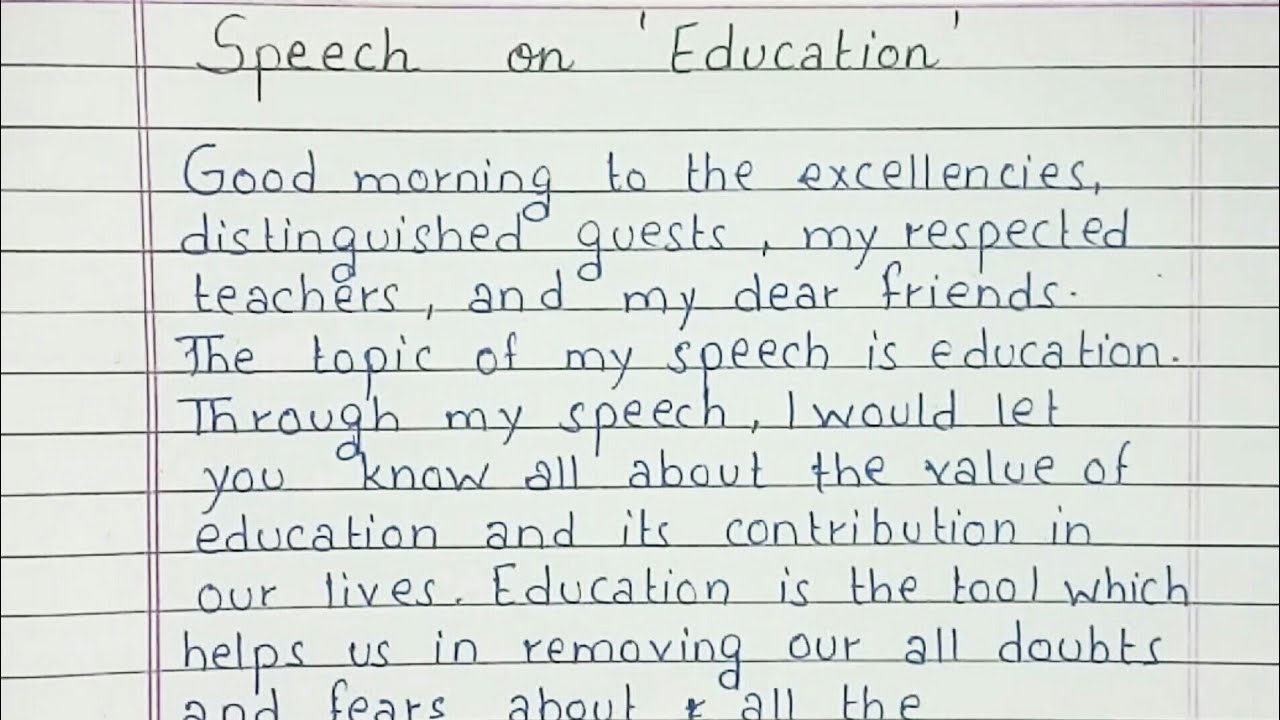 Speech on 'Education'
Good morning to the excellencies,
distinguished guests, my respected
teachers, and my dear friends.
The topic of my speech is education.
Through my speech, I would let
you know all about the value of
education and its contribution in
our lives. Education is the tool which
helps us in removing our all doubts
and fears about all the